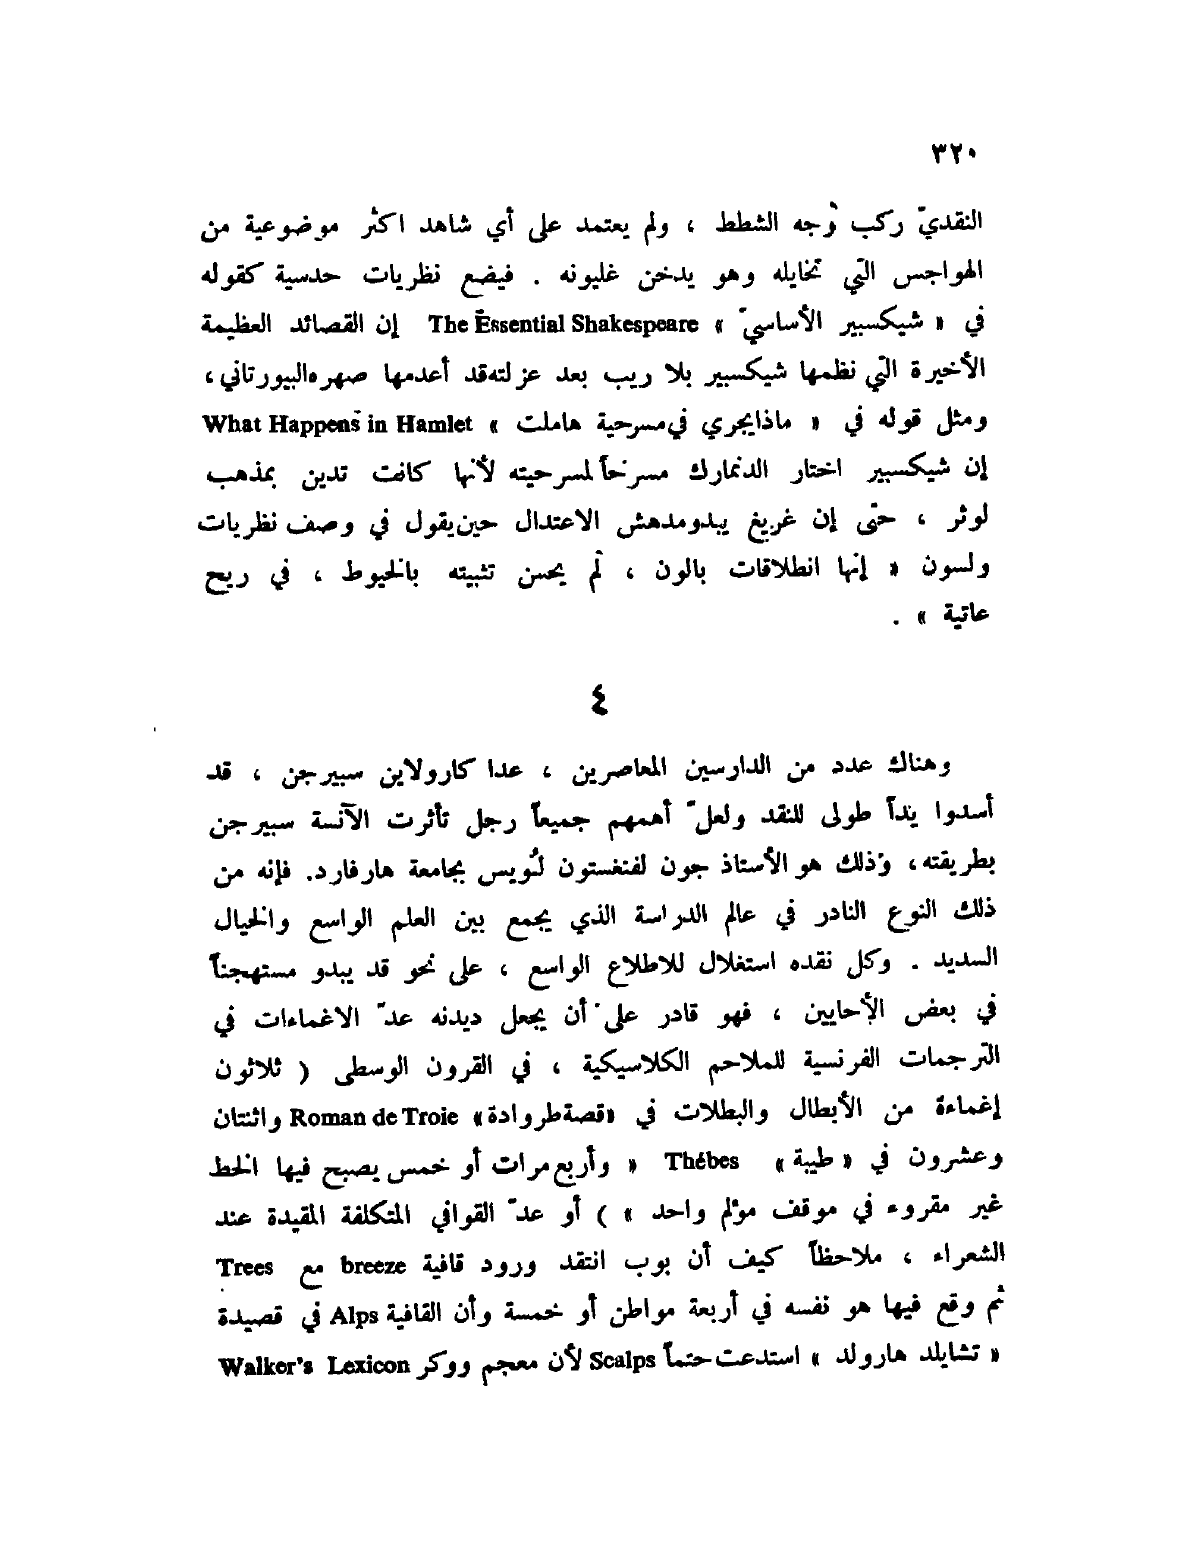 ٣٢٠
النقديّ ركب وجه الشطط ، ولم يعتمد على أي شاهد اكثر موضوعية من
الهواجس التي تخايله وهو يدخن غليونه . فيضع نظريات حدسية كقوله
في « شيكسبير الأساسيّ » The Essential Shakespeare إن القصائد العظيمة
الأخيرة التي نظمها شيكسبير بلا ريب بعد عزلته قد أعدمها صهره البيورتاني ،
ومثل قوله في « ماذا يجري في مسرحية هاملت » What Happens in Hamlet
إن شيكسبير اختار الدنمارك مسرحاً لمسرحيته لأنها كانت تدين بمذهب
لوثر ، حتى إن غريغ يبدو مدهش الاعتدال حين يقول في وصف نظريات
ولسون « إنها انطلاقات بالون ، لم يحسن تثبيته بالخيوط ، في ريح
عاتية » .
٤
وهناك عدد من الدارسين المعاصرين ، عدا كارولاين سبيرجن ، قد
أسدوا يداً طولى للنقد ولعلّ أهمهم جميعاً رجل تأثرت الآنسة سبيرجن
بطريقته ، وذلك هو الأستاذ جون لفنغستون لُويس بجامعة هارفارد. فإنه من
ذلك النوع النادر في عالم الدراسة الذي يجمع بين العلم الواسع والخيال
السديد . وكل نقده استغلال للاطلاع الواسع ، على نحو قد يبدو مستهجناً
في بعض الأحايين ، فهو قادر على أن يجعل ديدنه عدّ الاغماءات في
الترجمات الفرنسية للملاحم الكلاسيكية ، في القرون الوسطى ( ثلاثون
إغماءة من الأبطال والبطلات في «قصة طروادة» Roman de Troie واثنتان
وعشرون في « طيبة » Thébes « وأربع مرات أو خمس يصبح فيها الخط
غير مقروء في موقف مؤلم واحد » ) أو عدّ القوافي المتكلفة المقيدة عند
الشعراء ، ملاحظاً كيف أن بوب انتقد ورود قافية breeze مع Trees
ثم وقع فيها هو نفسه في أربعة مواطن أو خمسة وأن القافية Alps في قصيدة
« تشايلد هارولد » استدعت حتماً Scalps لأن معجم ووكر Walker's Lexicon